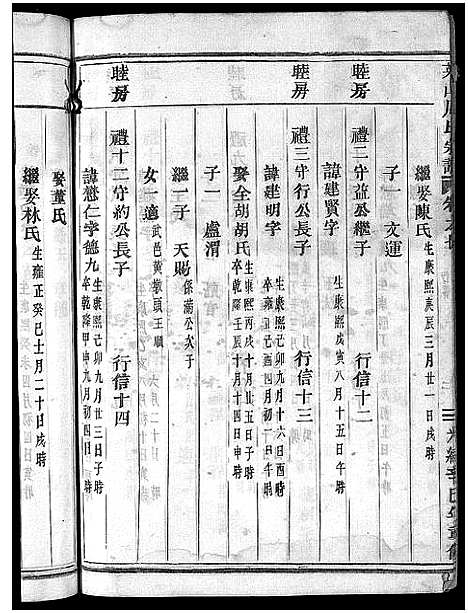 繼娶陳氏 生康熙庚辰三月廿一日戌時
子一 文運
睦房 禮二守益公繼子 行信十二
諱建賢字 生康熙戊寅八月十五日午時
睦房 禮三守行公長子 行信十三
諱建明字 生康熙己卯九月十六日酉時
娶全胡胡氏 生康熙丙戌十月廿五日子時 卒乾隆壬辰十月十四日申時
子一 盧渭
繼一子 天賜 係滿公次子
女一適 武邑黃墩頭王順
睦房 禮十二守約公長子 行信十四
諱懋仁字德九 生康熙己卯九月廿三日子時 卒乾隆甲申九月初四日時
娶董氏
繼娶林氏 生雍正癸巳十月二十日戌時